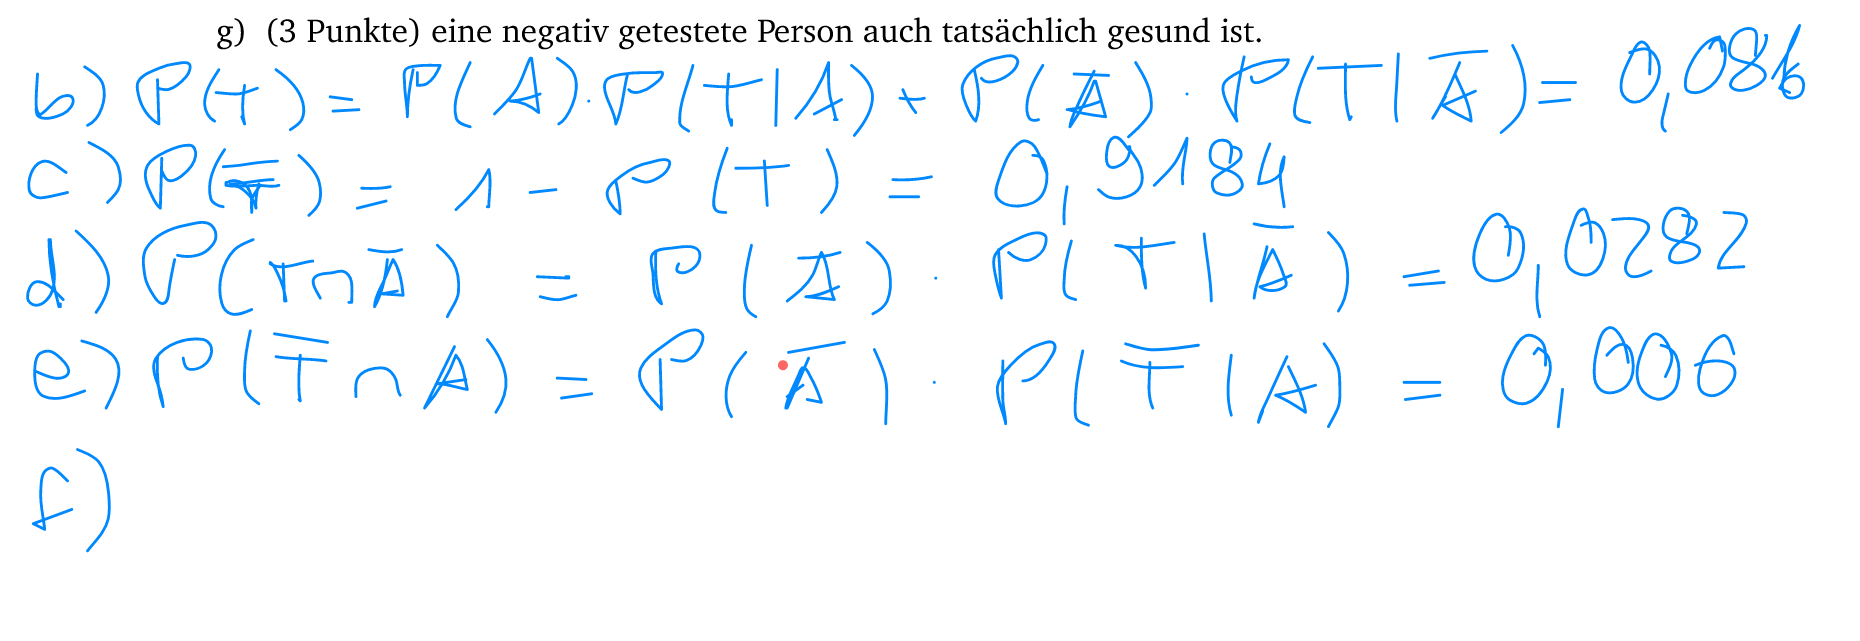 g) (3 Punkte) eine negativ getestete Person auch tatsächlich gesund ist.
b) P(T) = P(A) · P(T|A) + P(A̅) · P(T|A̅) = 0,086
c) P(T̅) = 1 - P(T) = 0,9184
d) P(T∩A̅) = P(A̅) · P(T|A̅) = 0,0282
e) P(T̅∩A) = P(A̅) · P(T̅|A) = 0,006
f)